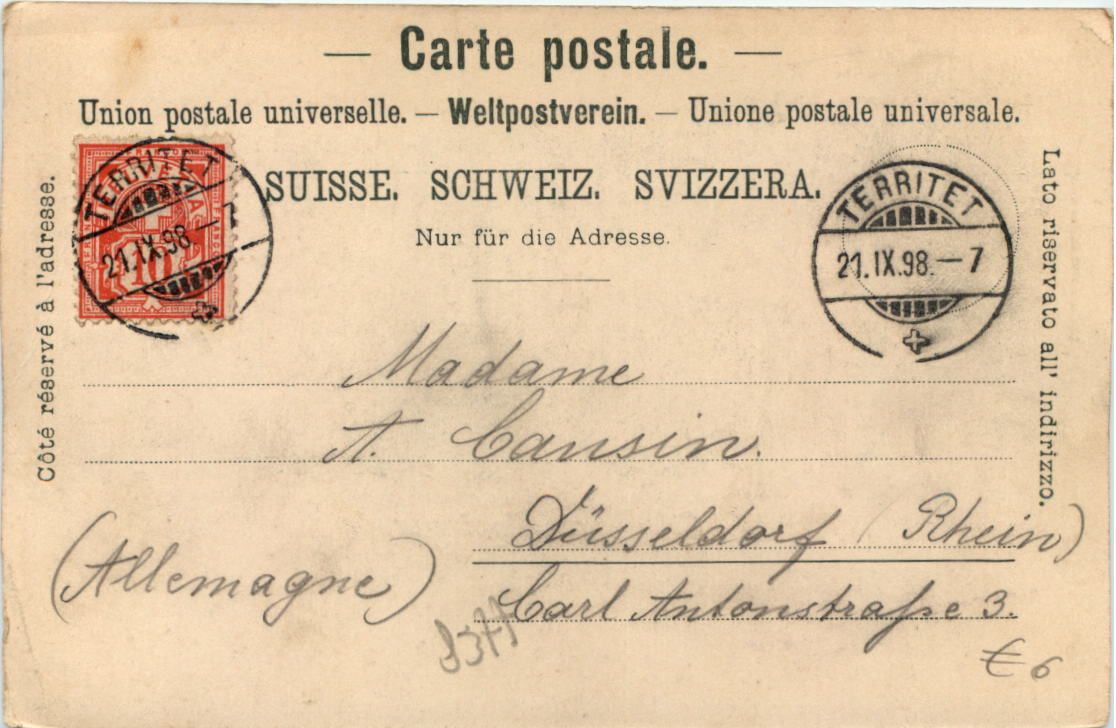 — Carte postale. —
Union postale universelle. — Weltpostverein. — Unione postale universale.
SUISSE. SCHWEIZ. SVIZZERA.
Nur für die Adresse.
Côté réservé à l'adresse.
Lato riservato all' indirizzo.
TERRITET
21.IX.98.—7
10
TERRITET
21.IX.98.—7
Madame
A. Cansin.
Düsseldorf (Rhein)
(Allemagne)
Carl Antonstraße 3.
€ 6